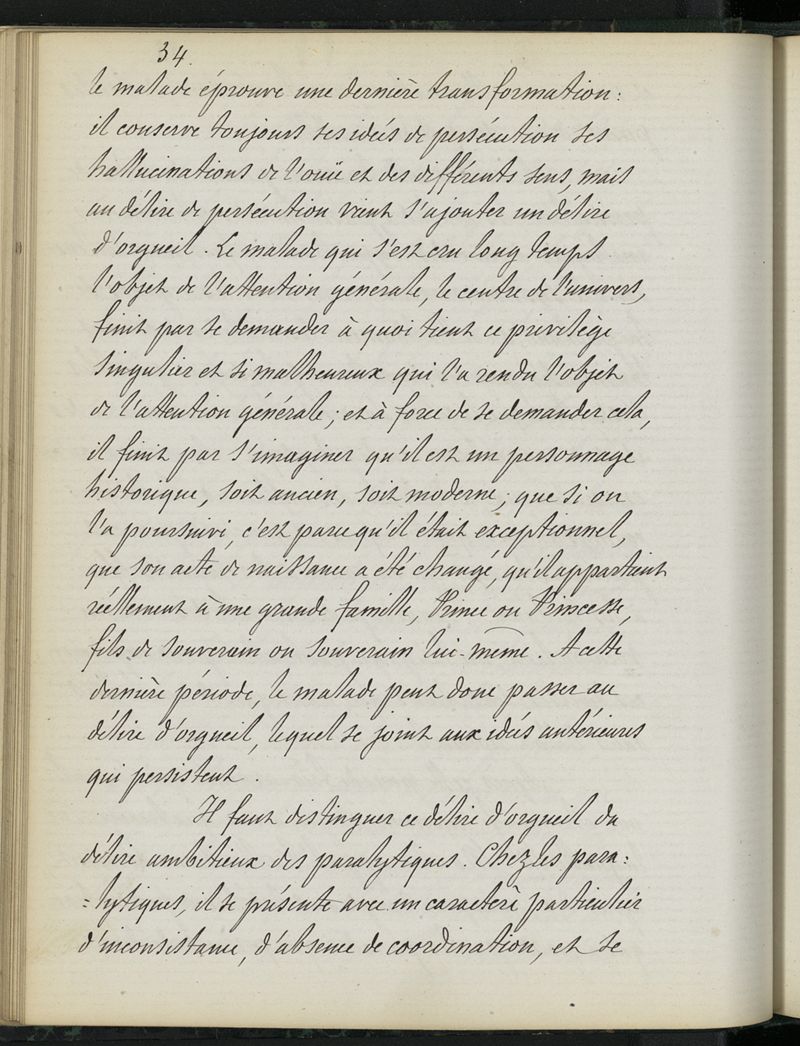 34.
le malade éprouve une dernière transformation :
il conserve toujours ses idées de persécution ses
hallucinations de l'ouïe et des différents sens, mais
au délire de persécution vient s'ajouter un délire
d'orgueil. Le malade qui s'est cru long temps
l'objet de l'attention générale, le centre de l'univers,
finit par se demander à quoi tient ce privilège
singulier et si malheureux qui l'a rendu l'objet
de l'attention générale ; et à force de se demander cela,
il finit par s'imaginer qu'il est un personnage
historique, soit ancien, soit moderne ; que si on
l'a poursuivi, c'est parce qu'il était exceptionnel,
que son acte de naissance a été changé, qu'il appartient
réellement à une grande famille, Prince ou Princesse,
fils de souverain ou souverain lui-même. A cette
dernière période, le malade peut donc passer au
délire d'orgueil, lequel se joint aux idées antérieures
qui persistent.
Il faut distinguer ce délire d'orgueil du
délire ambitieux des paralytiques. Chez les para=
=lytiques, il se présente avec un caractère particulier
d'inconsistance, d'absence de coordination, et se